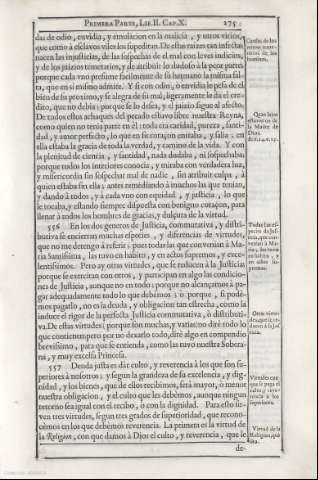 PRIMERA PARTE, LIB. II. CAP. X.
275.
das de odio, envidia, y emulacion en la malicia, y otros vicios,
que como à esclavos viles los supeditan. De estas raizes can infectas
nacen las injusticias, de las sospechas de el mal con leves indicios,
y de los juizios temerarios, y de atribuir lo dudoso à la peor parte;
porque cada vno presume facilmente de su hermano la misma falta,
que en si mismo admite. Y si con odio, ò envidia le pesa de el
bien de su proximo, y se alegra de su mal, ligeramente le dà el credito,
que no debia: porque se lo desea, y el juizio sigue al afecto.
De todos estos achaques del pecado estuvo libre nuestra Reyna,
como quien no tenia parte en èl: toda era caridad, pureza, santidad,
y amor perfecto, lo que en su coraçon entraba, y salia: en
ella estaba la gracia de toda la verdad, y camino de la vida. Y con
la plenitud de ciencia, y santidad, nada dudaba, ni sospechaba;
porque todos los interiores conocia, y miraba con verdadera luz,
y misericordia sin sospechar mal de nadie, sin atribuir culpa, à
quien estaba sin ella; antes remediando à muchos las que tenian,
y dando à todos, y à cada vno con equidad, y justicia, lo que
le tocaba, y estando siempre dispuesta con benigno coraçon, para
llenar à todos los hombres de gracias, y dulçura de la virtud.
556 En los dos generos de Justicia, commutativa, y distributiva
se encierran muchas especies, y diferencias de virtudes,
que no me detengo à referir; pues todas las que convenian à Maria
Santissima, las tuvo en habito, y en actos supremos, y excelentissimos.
Pero ay otras virtudes, que se reducen à la Justicia;
porque se exercitan con otros, y participan en algo las condiciones
de Justicia, aunque no en todo; porque no alcançamos à pagar
adequadamente todo lo que debemos; ò porque, si podemos
pagarlo, no es la deuda, y obligacion tan estrecha, como la
induce el rigor de la perfecta Justicia commutativa, ò distributiva.
De estas virtudes (porque son muchas, y varias) no dirè todo lo
que contienen; pero no dexarlo todo, dirè algo en compendio
brevissimo, para que se entienda, como las tuvo nuestra Soberana,
y muy excelsa Princesa.
557 Deuda justa es dar culto, y reverencia à los que son superiores
à nosotros: y segun la grandeza de su excelencia, y dignidad,
y los bienes, que de ellos recibimos, serà mayor, ò menor
nuestra obligacion, y el culto que les debemos, aunque ningun
retorno sea igual con el recibo, ò con la dignidad. Para esto sirven
tres virtudes, segun tres grados de superioridad, que reconocemos
en los que debemos reverencia. La primera es la virtud de
la Religion, con que damos à Dios el culto, y reverencia, que le
de-
Quan lejos
estuvo de estos
la Madre de
Dios.
Virtud de la
Religion,